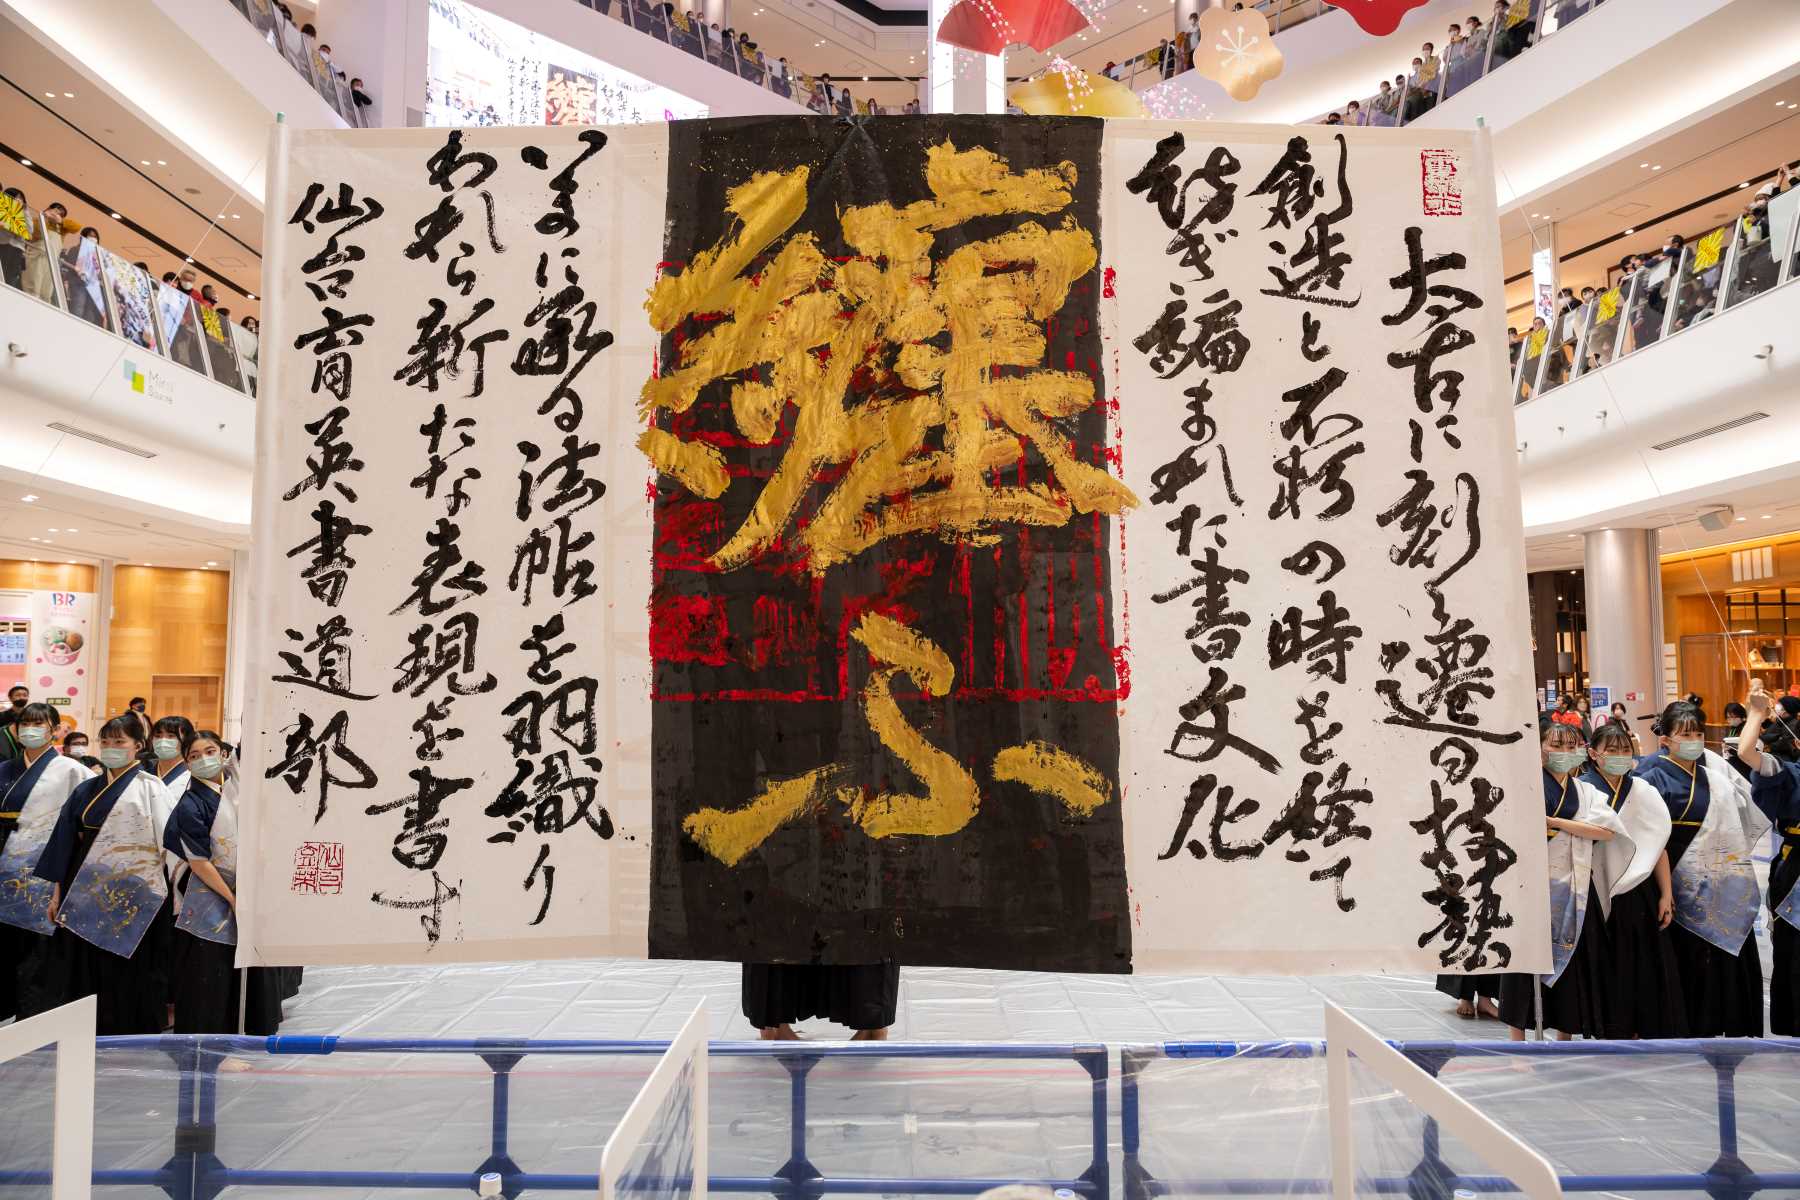 太古に刻し遷の技藝
創造と不朽の時を経て
紡ぎ編まれた書文化
纏ふ
いまに承る法帖を羽織り
われら新たな表現を書す
仙台育英書道部
BR